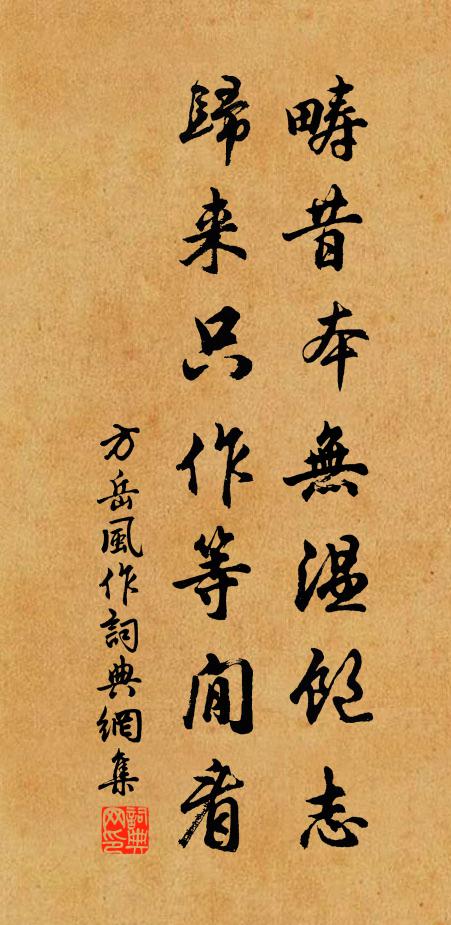 疇昔本無温飽志
歸来只作等閒看
方岳風作詞典網集
詞典網印